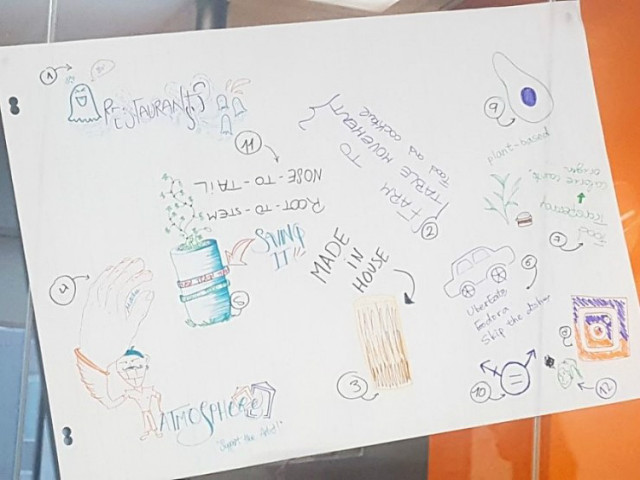 1
RESTAURANTS
11
NOSE-TO-TAIL
ROOT-TO-STEM
2
FARM TO
TABLE MOVEMENT
Food and cocktail
9
plant-based
7
Food
Transparency
calorie cont.
origin
4
5
SAVING
IT
MADE
IN
HOUSE
3
6
UberEats
Fedora
Skip the
8
10
12
ATMOSPHERE
"Support the Artist"